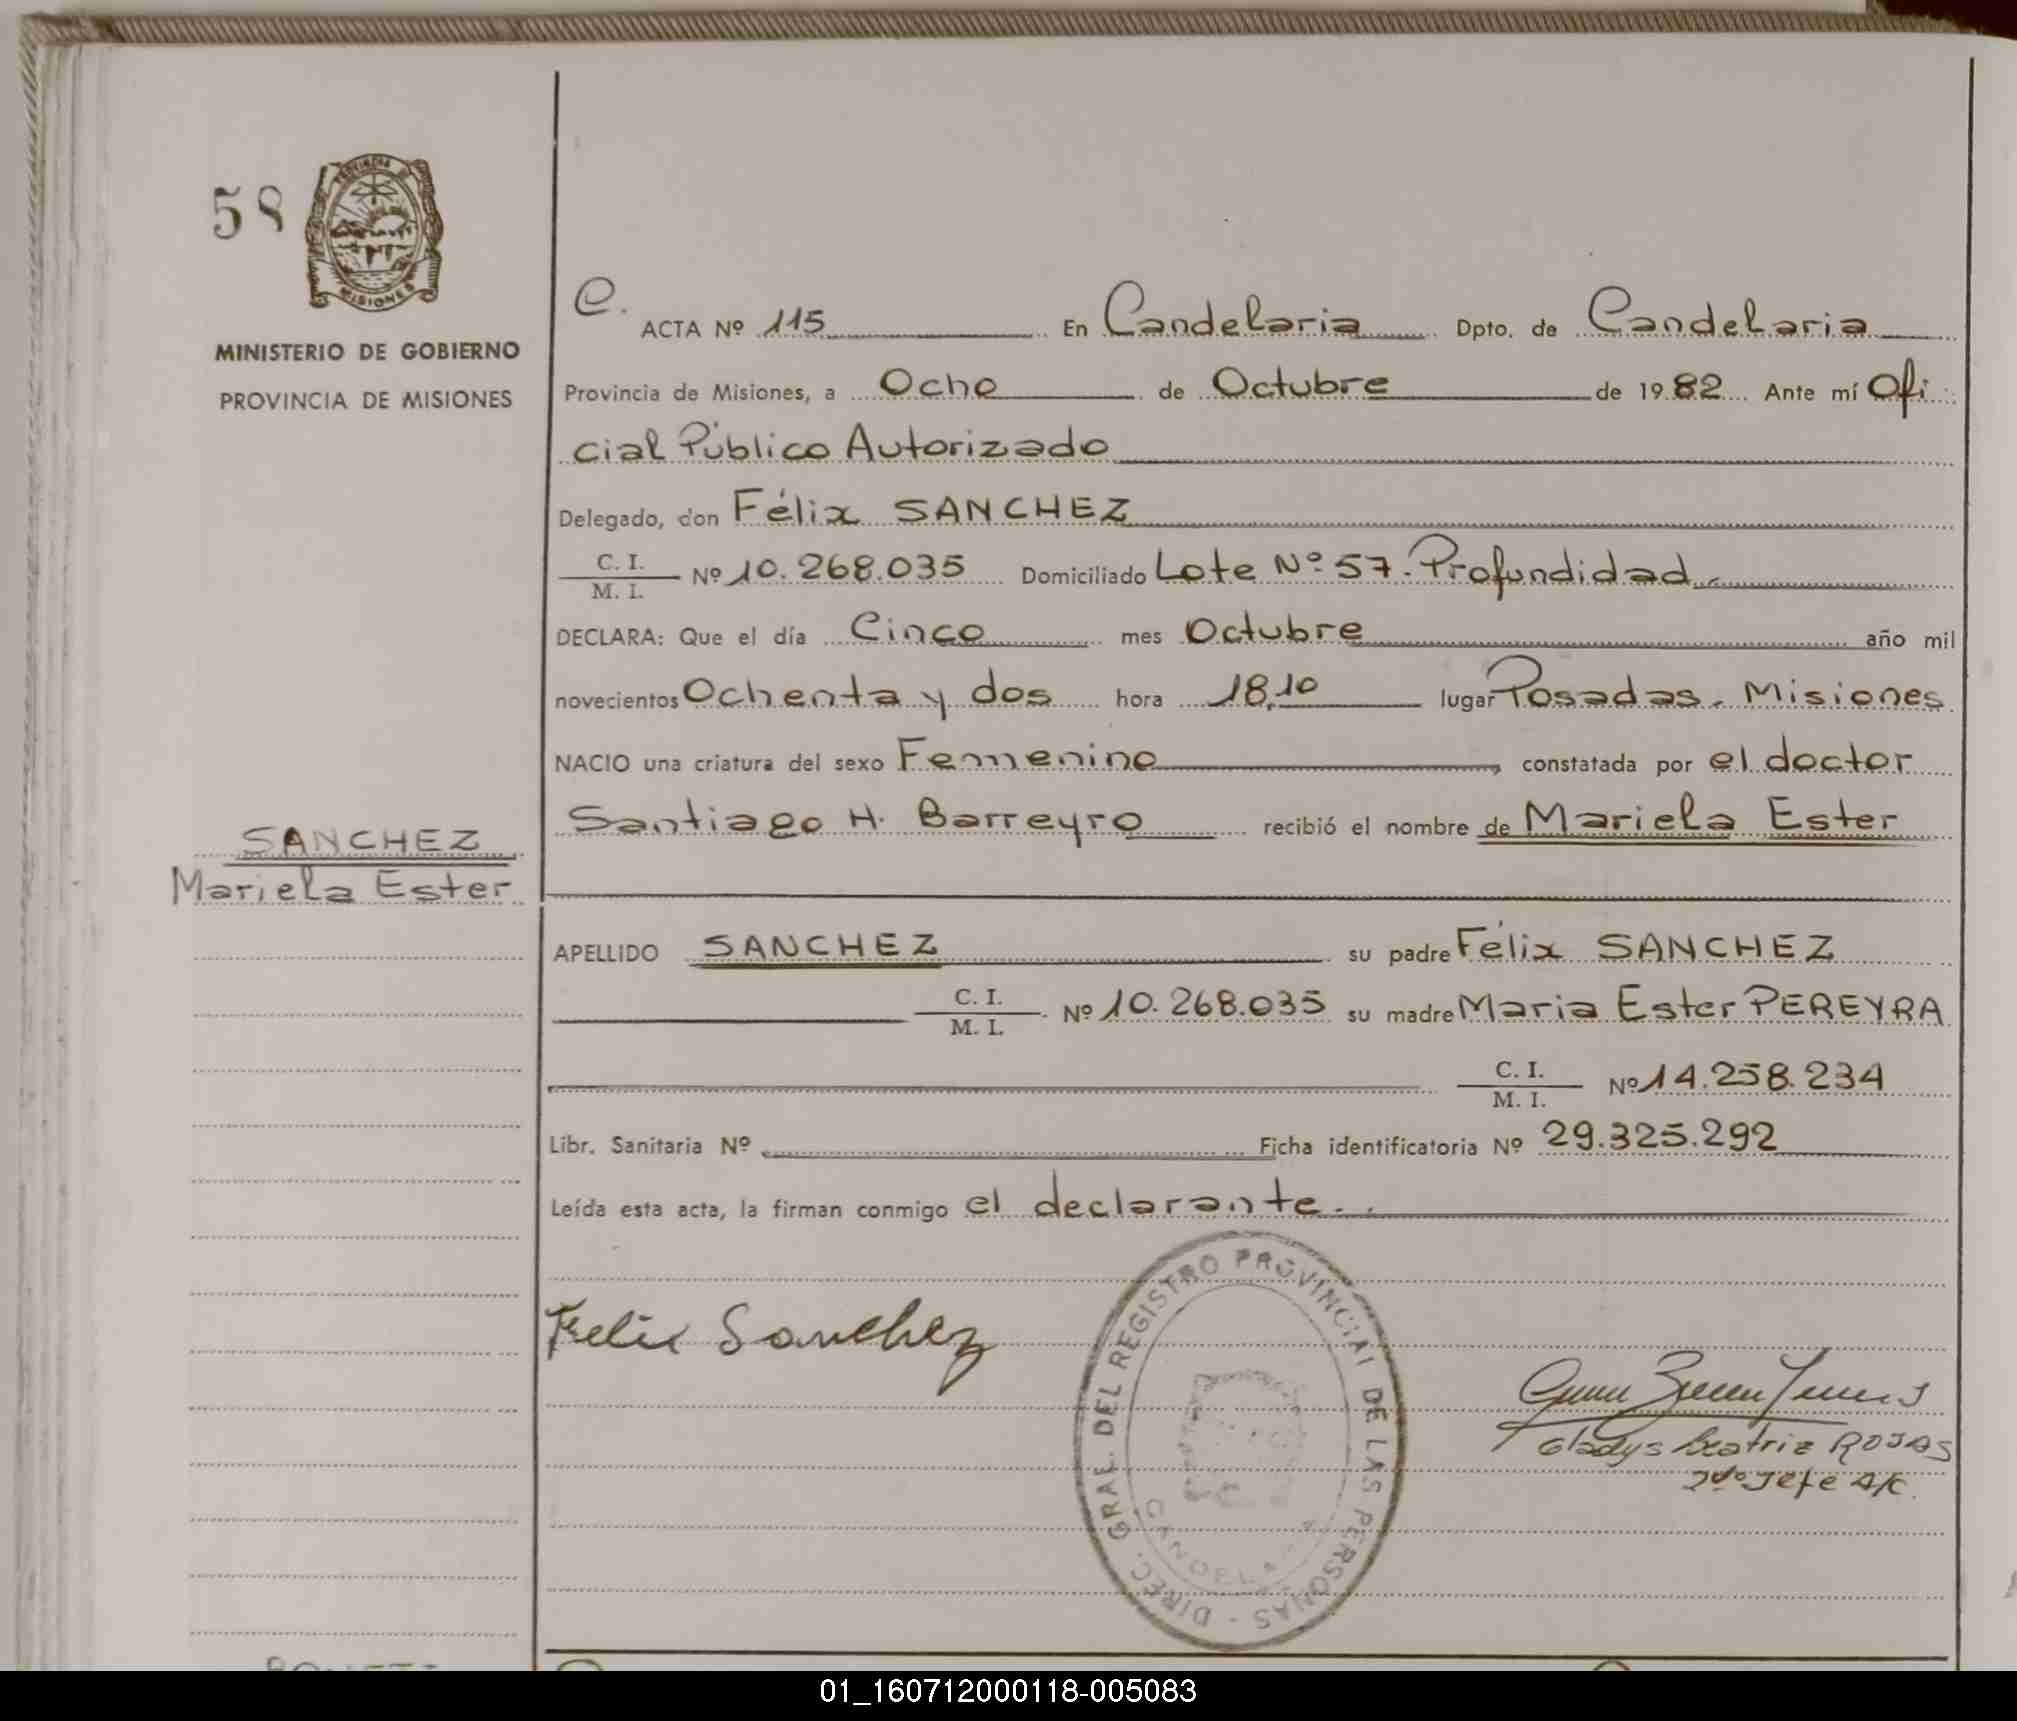 58
PROVINCIA DE
MISIONES
MINISTERIO DE GOBIERNO
PROVINCIA DE MISIONES
SANCHEZ
Mariela Ester
C. ACTA Nº 115 En Candelaria Dpto. de Candelaria
Provincia de Misiones, a Ocho de Octubre de 1982 Ante mí Ofi
cial Público Autorizado
Delegado, don Félix SANCHEZ
C. I.
M. I. Nº 10.268.035 Domiciliado Lote Nº 57. Profundidad.
DECLARA: Que el día Cinco mes Octubre año mil
novecientos Ochenta y dos hora 18,10 lugar Posadas. Misiones
NACIO una criatura del sexo Femenino constatada por el doctor
Santiago H. Barreyro recibió el nombre de Mariela Ester
APELLIDO SANCHEZ su padre Félix SANCHEZ
C. I.
M. I. Nº 10.268.035 su madre Maria Ester PEREYRA
C. I.
M. I. Nº 14.258.234
Libr. Sanitaria Nº Ficha identificatoria Nº 29.325.292
Leída esta acta, la firman conmigo el declarante.
Felix Sanchez
DIREC. GRAL. DEL REGISTRO PROVINCIAL DE LAS PERSONAS -
Gladys Beatriz ROJAS
2do Jefe A/C.
01_160712000118-005083